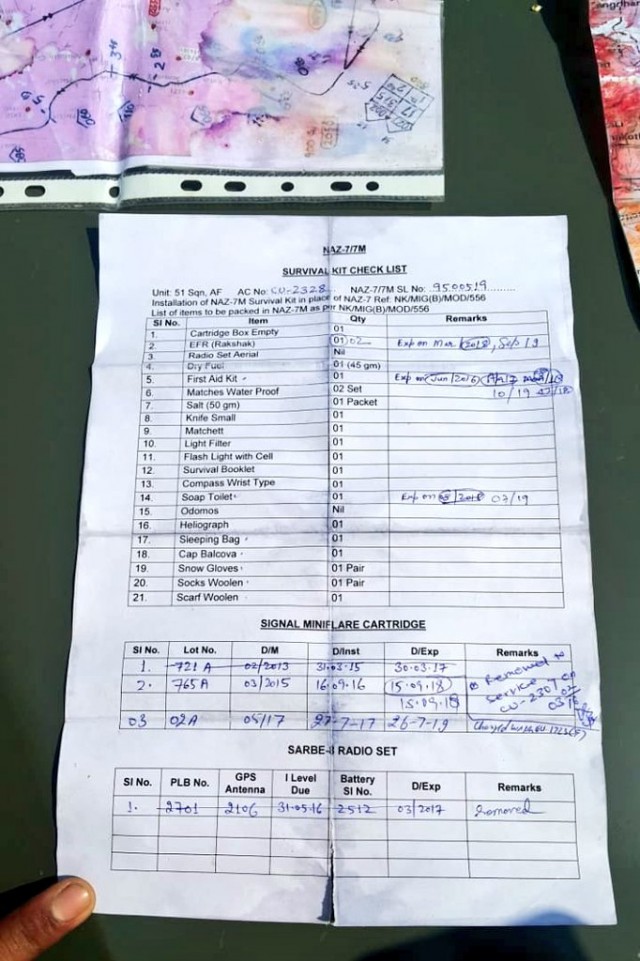 NAZ-7/7M
SURVIVAL KIT CHECK LIST
Unit: 51 Sqn, AF AC No: CU-2328 NAZ-7/7M SL No: 9500519
Installation of NAZ-7M Survival Kit in place of NAZ-7 Ref: NK/MIG(B)/MOD/556
List of items to be packed in NAZ-7M as per NK/MIG(B)/MOD/556
Sl No. Item Qty Remarks
1. Cartridge Box Empty 01
2. EFR (Rakshak) 01 02 Exp on Mar 2018, Sep 19
3. Radio Set Aerial Nil
4. Dry Fuel 01 (45 gm)
5. First Aid Kit 01 Exp on Jun/2016
6. Matches Water Proof 02 Set 10/19
7. Salt (50 gm) 01 Packet
8. Knife Small 01
9. Matchett 01
10. Light Filter 01
11. Flash Light with Cell 01
12. Survival Booklet 01
13. Compass Wrist Type 01
14. Soap Toilet 01 Exp on 2018 07/19
15. Odomos Nil
16. Heliograph 01
17. Sleeping Bag 01
18. Cap Balcova 01
19. Snow Gloves 01 Pair
20. Socks Woolen 01 Pair
21. Scarf Woolen 01
SIGNAL MINIFLARE CARTRIDGE
Sl No. Lot No. D/M D/Inst D/Exp Remarks
1. 721 A 02/2013 31.03.15 30.03.17
2. 765A 03/2015 16.09.16 15.09.18 Removed to Service CU-2307 on
15.09.18
03 02A 05/17 27-7-17 26-7-19
SARBE-8 RADIO SET
Sl No. PLB No. GPS Antenna I Level Due Battery Sl No. D/Exp Remarks
1. 2701 2106 31.05.16 2512 03/2017 Removed